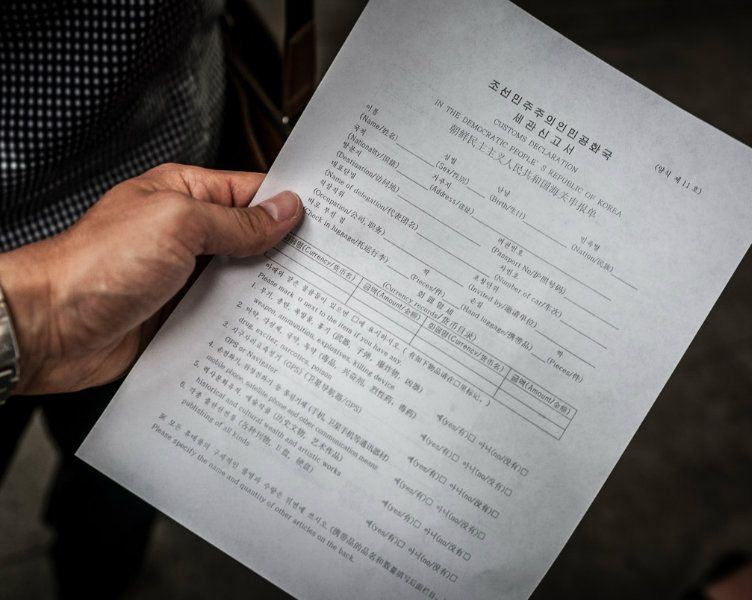 (양식 제 11 호)
조선민주주의인민공화국
세관신고서
CUSTOMS DECLARATION
IN THE DEMOCRATIC PEOPLE'S REPUBLIC OF KOREA
朝鲜民主主义人民共和国海关申报单
이름 성별 난날 민족별
(Name/姓名) (Sex/性别) (Birth/生日) (Nation/民族)
국적 거주지 려권번호
(Nationality/国籍) (Address/住址) (Passport No/护照号码)
(Destination/访问地) (Number of car/车次)
대표단명 초청단위
(Name of delegation/代表团名) (Invited by/邀请单位)
직장직위 손짐 짝
(Occupation/公司,职务) (Hand luggage/携带品) (Pieces/件)
따로 부친 짐 짝
(Check in luggage/托运行李) (Pieces/件)
(Currency records/货币目录)
화폐명(Currency/货币名) 금액(Amount/金额) 화폐명(Currency/货币名) 금액(Amount/金额)
아래와 같은 물품들이 있으면 □에 표시하시오. (有如下物品请在□里标记。)
Please mark □ next to the item if you have any
1. 무기, 총탄, 폭발물, 흉기 (武器, 子弹, 爆炸物, 凶器) 예(yes/有)□ 아니(no/没有)□
weapon, ammunition, explosives, killing device
2. 마약, 독약 (毒品, 兴奋剂, 烈性药, 毒药) 예(yes/有)□ 아니(no/没有)□
drug, exciter, narcotics, poison
3. (GPS) (卫星导航器/GPS) 예(yes/有)□ 아니(no/没有)□
GPS or Navigator
4. 손전화기, 위성전화기 등 통신기재 (手机, 卫星手机等通讯器材) 예(yes/有)□ 아니(no/没有)□
mobile phone, satellite phone and other communication means
5. 력사문화유물, 예술작품 (历史文物, 艺术作品) 예(yes/有)□ 아니(no/没有)□
historical and cultural wealth and artistic works
6. 각종 출판선전물 (各种刊物, U盘, 硬盘) 예(yes/有)□ 아니(no/没有)□
publishings of all kinds
※ 모든 휴대품의 구체적인 품명과 수량은 뒤면에 쓰시오. (携带品的品名和数量填写后面栏目
Please specify the name and quantity of other articles on the back.